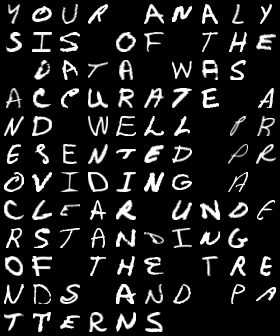 YOUR ANALY
SIS OF THE
DATA WAS
ACCURATE A
ND WELL PR
ESENTED PR
OVIDING A
CLEAR UNDE
RSTANDING
OF THE TRE
NDS AND PA
TTERNS